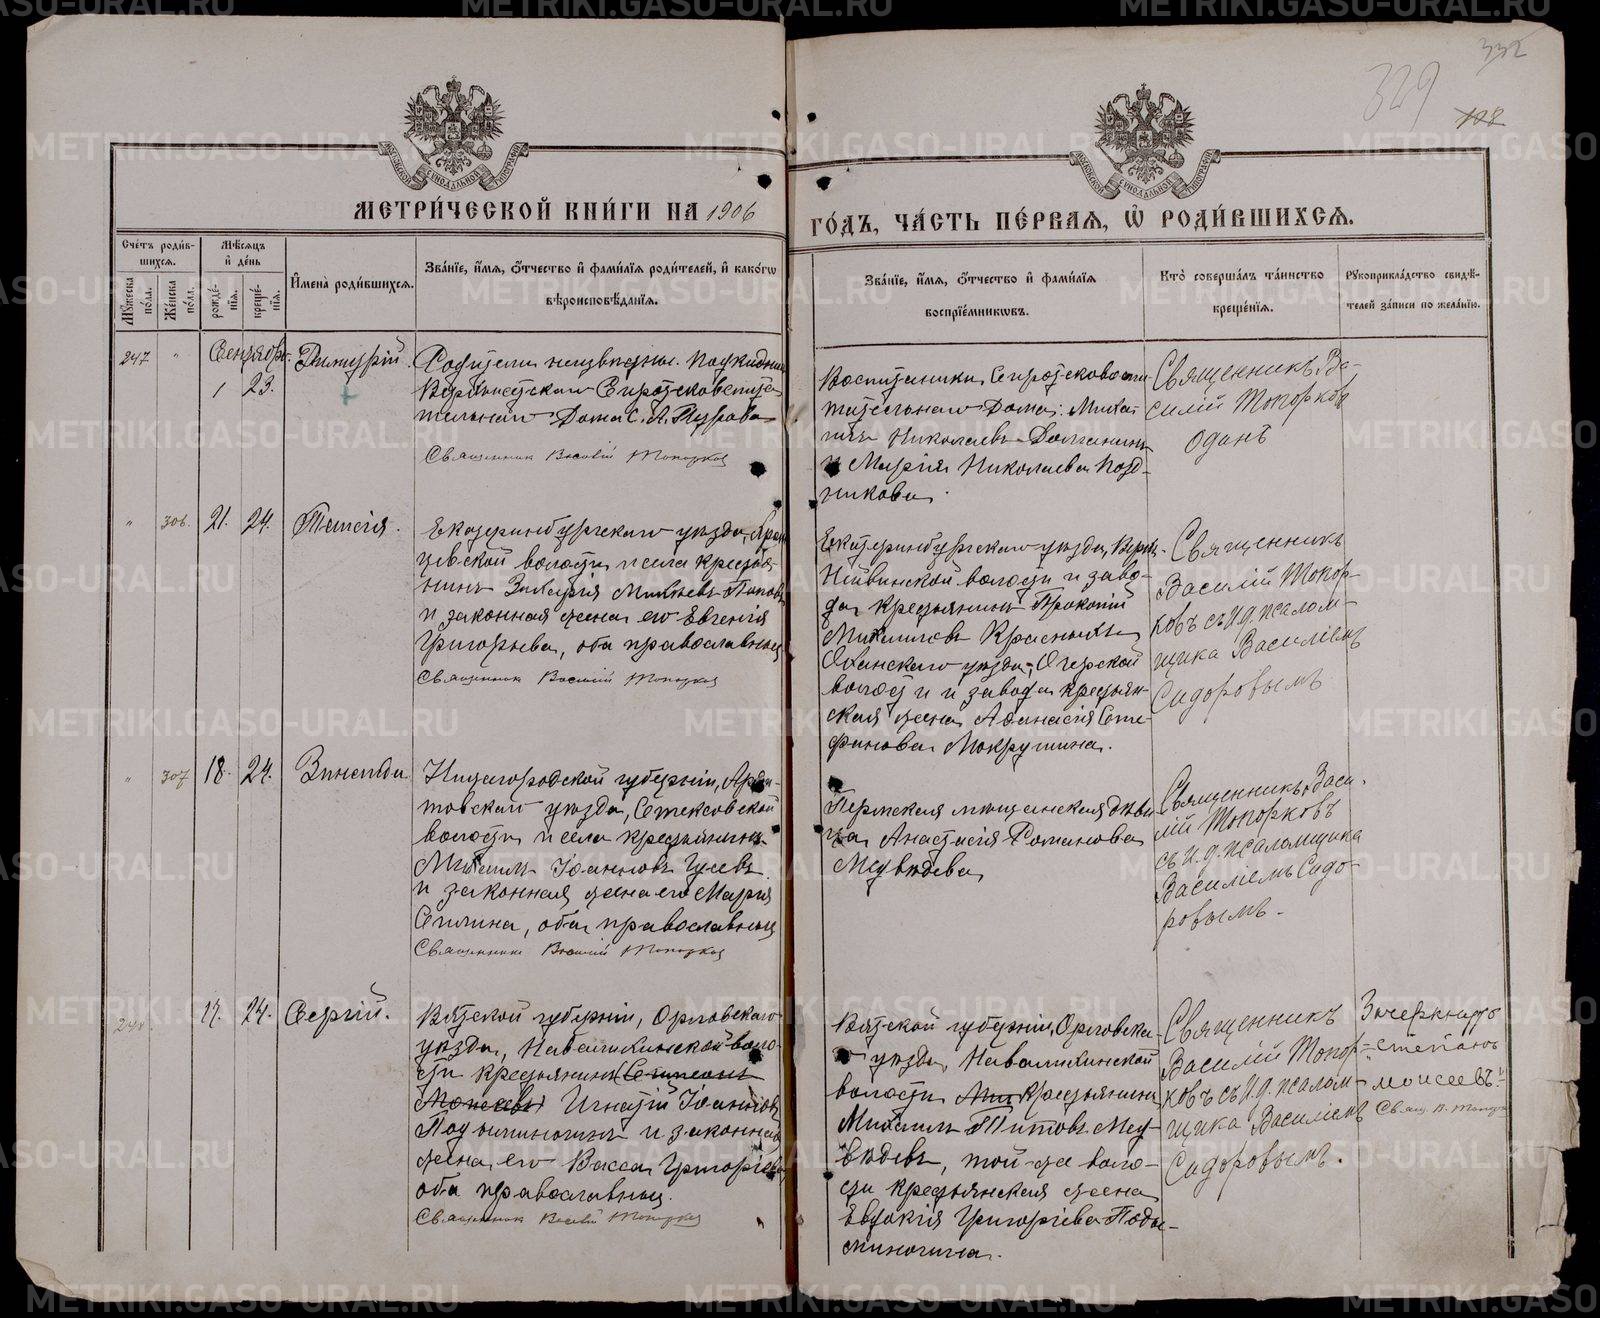 METRIKI.GASO-URAL.RU
332
329
108
МОСКОВСКОЙ СУНОДАЛЬНОЙ ТИПОГРАФІИ
МЕТРИ́ЧЕСКОЙ КНИ́ГИ НА 1906
ГО́ДЪ, ЧА́СТЬ ПЕ́РВАЯ, Ѽ РОДИ́ВШИХСѦ.
Сче́тъ роди́в-
шихсѧ.
Мѹжеска по́ла.
Же́нска по́ла.
Мѣ́сѧцъ
и҆ де́нь
рожде́-
нїѧ.
креще́-
нїѧ.
И҆мена̀ роди́вшихсѧ.
Зва́нїе, и҆́мѧ, ѻ҆́тчество и҆ фами́лїѧ роди́телей, и҆ како́гѡ
вѣроисповѣ́данїѧ.
Зва́нїе, и҆́мѧ, ѻ҆́тчество и҆ фами́лїѧ
воспрїе́мниковъ.
Кто̀ соверша́лъ та́инство
креще́нїѧ.
Рѹкоприкла́дство свидѣ́-
телей за́писи по жела́нїю.
247 " Сентябр.
1 23.
Димитрій.
Родители неизвѣстны. Подкидыш
Верхъисетскаго Сиротсковоспита-
тельнаго Дома С. А. Петрова
Священник Василій Топорков
Воспитанники Сиротсковоспи-
тательнаго Дома: Миха-
илъ Николаевъ Долганинъ
и Марія Николаева Позд-
никова.
Священникъ Ва-
силій Топорковъ
одинъ
" 306. 21. 24. Таисія.
Екатеринбургскаго уѣзда,
волости и села кресть-
янинъ Захарія Матвѣевъ Поповъ
и законная жена его Евгенія
Григорьева, оба православные
Священник Василій Топорков
Екатеринбургскаго уѣзда, Верх-
Нейвинской волости и заво-
да крестьянинъ Прокопій
Михаиловъ Красныхъ и
Оханскаго уѣзда, Очерской
волости и завода крестьян-
ская жена Афанасія Сте-
фанова Мокрушина.
Священникъ
Василій Топор-
ковъ съ и. д. псалом-
щика Василіемъ
Сидоровымъ
" 307 18. 24. Зинаида
Нижегородской губерніи, Арда-
товскаго уѣзда, Стексовской
волости и села крестьянинъ
Михаилъ Іоанновъ Гусевъ
и законная жена его Марія
оба православные
Священник Василій Топорков
Пермская мѣщанская дѣви-
ца Анастасія Романова
Медвѣдева
Священникъ Васи-
лій Топорковъ
съ и. д. псаломщика
Василіемъ Сидо-
ровымъ.
248. 17. 24. Сергій.
Вятской губерніи, Орловскаго
уѣзда, Навалихинской воло-
сти крестьянинъ Степанъ
Моисеевъ Игнатій Іоанновъ
Подыминогинъ и законная
жена его Васса Григорьева,
оба православные.
Священник Василій Топорков
Вятской губерніи Орловска-
го уѣзда, Навалихинской
волости крестьянинъ
Михаилъ Титовъ Мед-
вѣдевъ, той-же воло-
сти крестьянская жена
Евдокія Григоріева Поды-
миногина.
Священникъ
Василій Топор-
ковъ съ и. д. псалом-
щика Василіемъ
Сидоровымъ.
Зачеркнуто
"Степанъ
Моисеевъ".
Свящ. В. Топорков